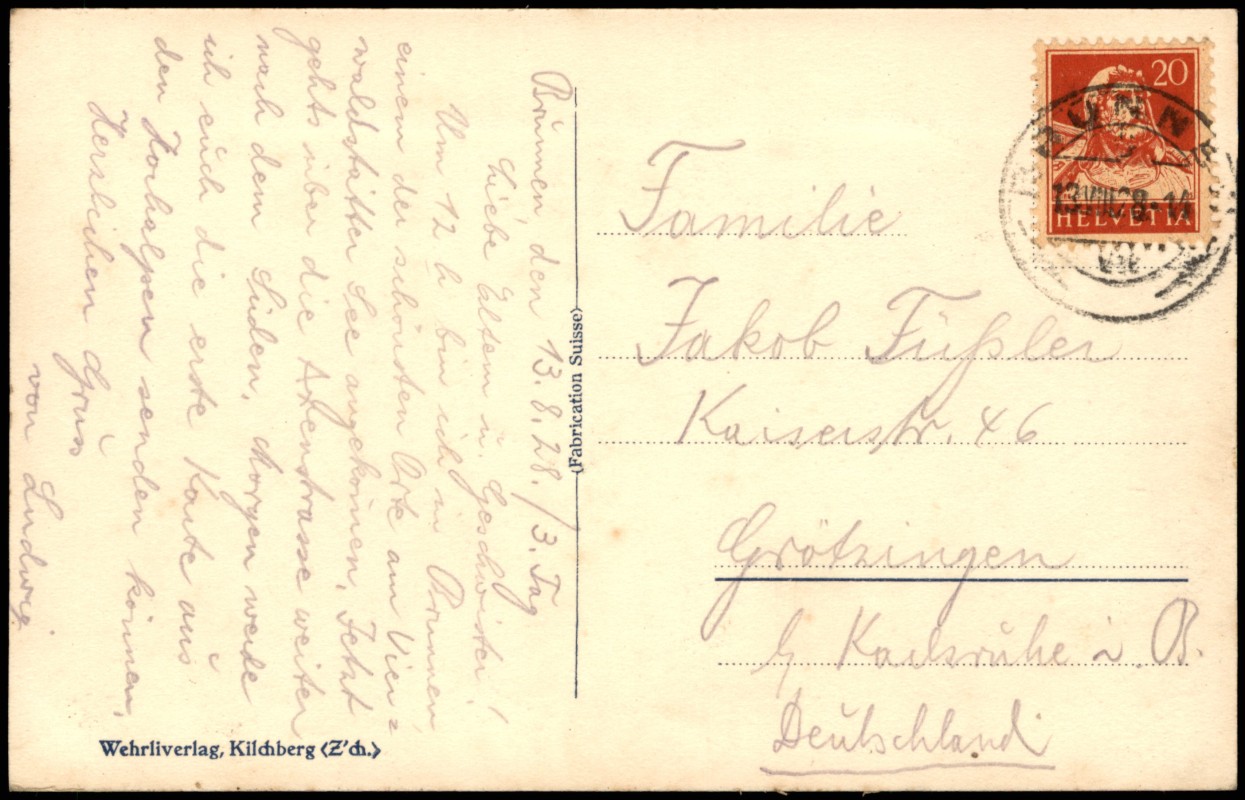 Brunnen den 13.8.28. / 3. Tag
Liebe Eltern u. Geschwister!
Um 12 h bin ich in Brunnen,
einem der schönsten Orte am Vier=
waldstätter See angekommen. Jetzt
gehts über die Axenstrasse weiter
nach dem Süden. Morgen werde
ich euch die erste Karte aus
den Hochalpen senden können,
Herzlichen Gruss
von Ludwig.
Wehrliverlag, Kilchberg (Z'ch.)
(Fabrication Suisse)
20
HELVETIA
BRUNNEN
13.VIII.28-14
Familie
Jakob Füßler
Kaiserstr. 46
Grötzingen
b/ Karlsruhe i. B.
Deutschland